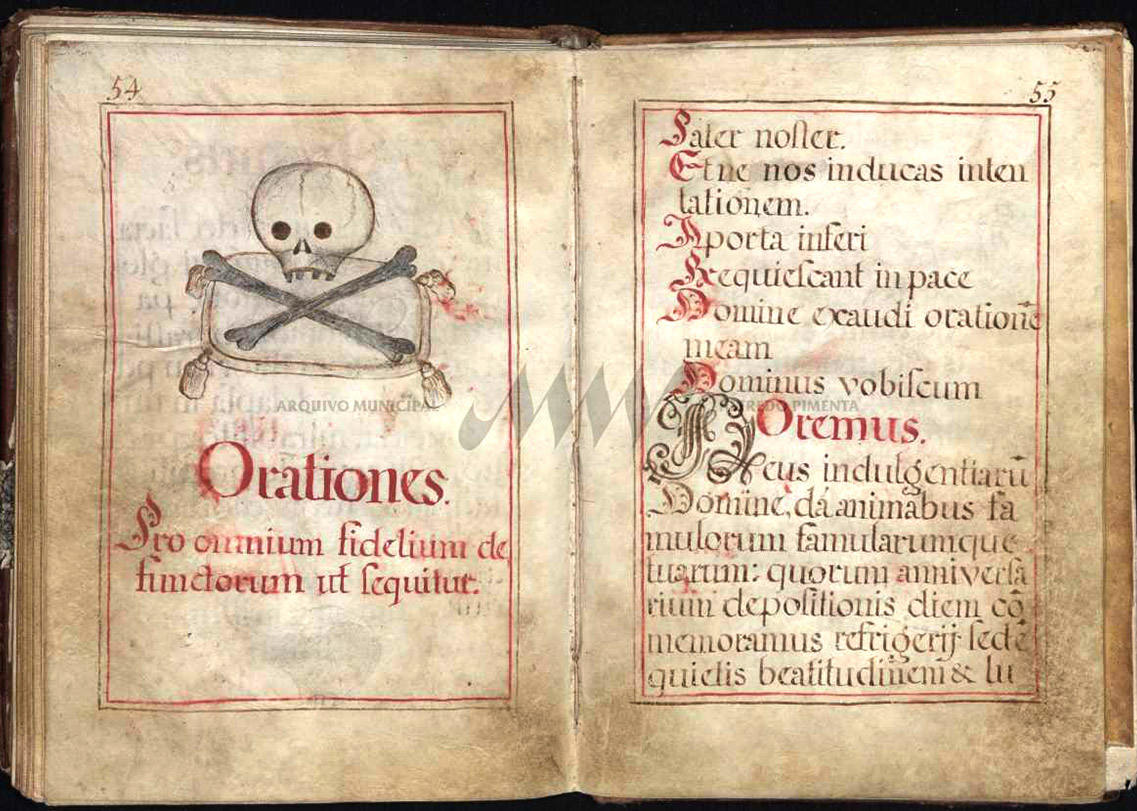 54
Orationes.
Pro omnium fidelium de
functorum ut ſequitur.
55
Pater noſter.
Et ne nos inducas inten
tationem.
A porta inferi
Requieſcant in pace
Domine exaudi orationē
meam
Dominus vobiſcum
Oremus.
Deus indulgentiarū
Domine, dá animabus fa
mulorum famularumque
tuarum: quorum anniverſa
rium depoſitionis diem cō
memoramus refrigerij ſedē
quietis beatitudinem & lu
ARQUIVO MUNICIPAL ALFREDO PIMENTA